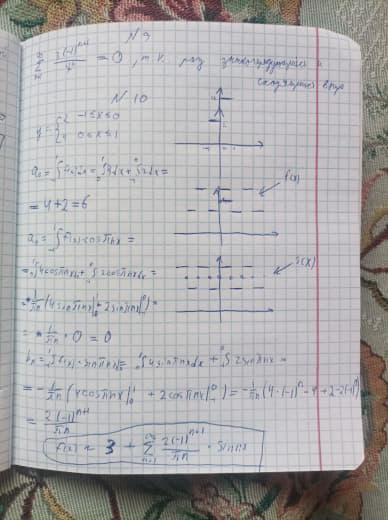 N 9
∞ Σ n=1 2(-1)^(n+1) / = 0, т.к. ряд знакочередующийся и
сходящийся
N 10
y = { 2 -1≤x≤0
4 0≤x≤1
f(x)
= 4+2=6
aₙ = ∫ f(x)·cosπnx =
S(x)
= ∫ 4cosπnx + ∫ 2cosπnx dx =
= 1/πn (4sinπnx|₀¹ + 2sinπnx|) =
= 1/πn · 0 = 0
bₙ = ∫ f(x)·sinπnx = ∫ 4sinπnxdx + ∫ 2sinπnx =
= -1/πn (4cosπnx|₀¹ + 2cosπnx|) = -1/πn (4·(-1)ⁿ-4+2-2(-1)ⁿ)
= 2(-1)^(n+1) / πn
f(x) ~ 3 + ∞ Σ n=1 2(-1)^(n+1) / πn · sinπx